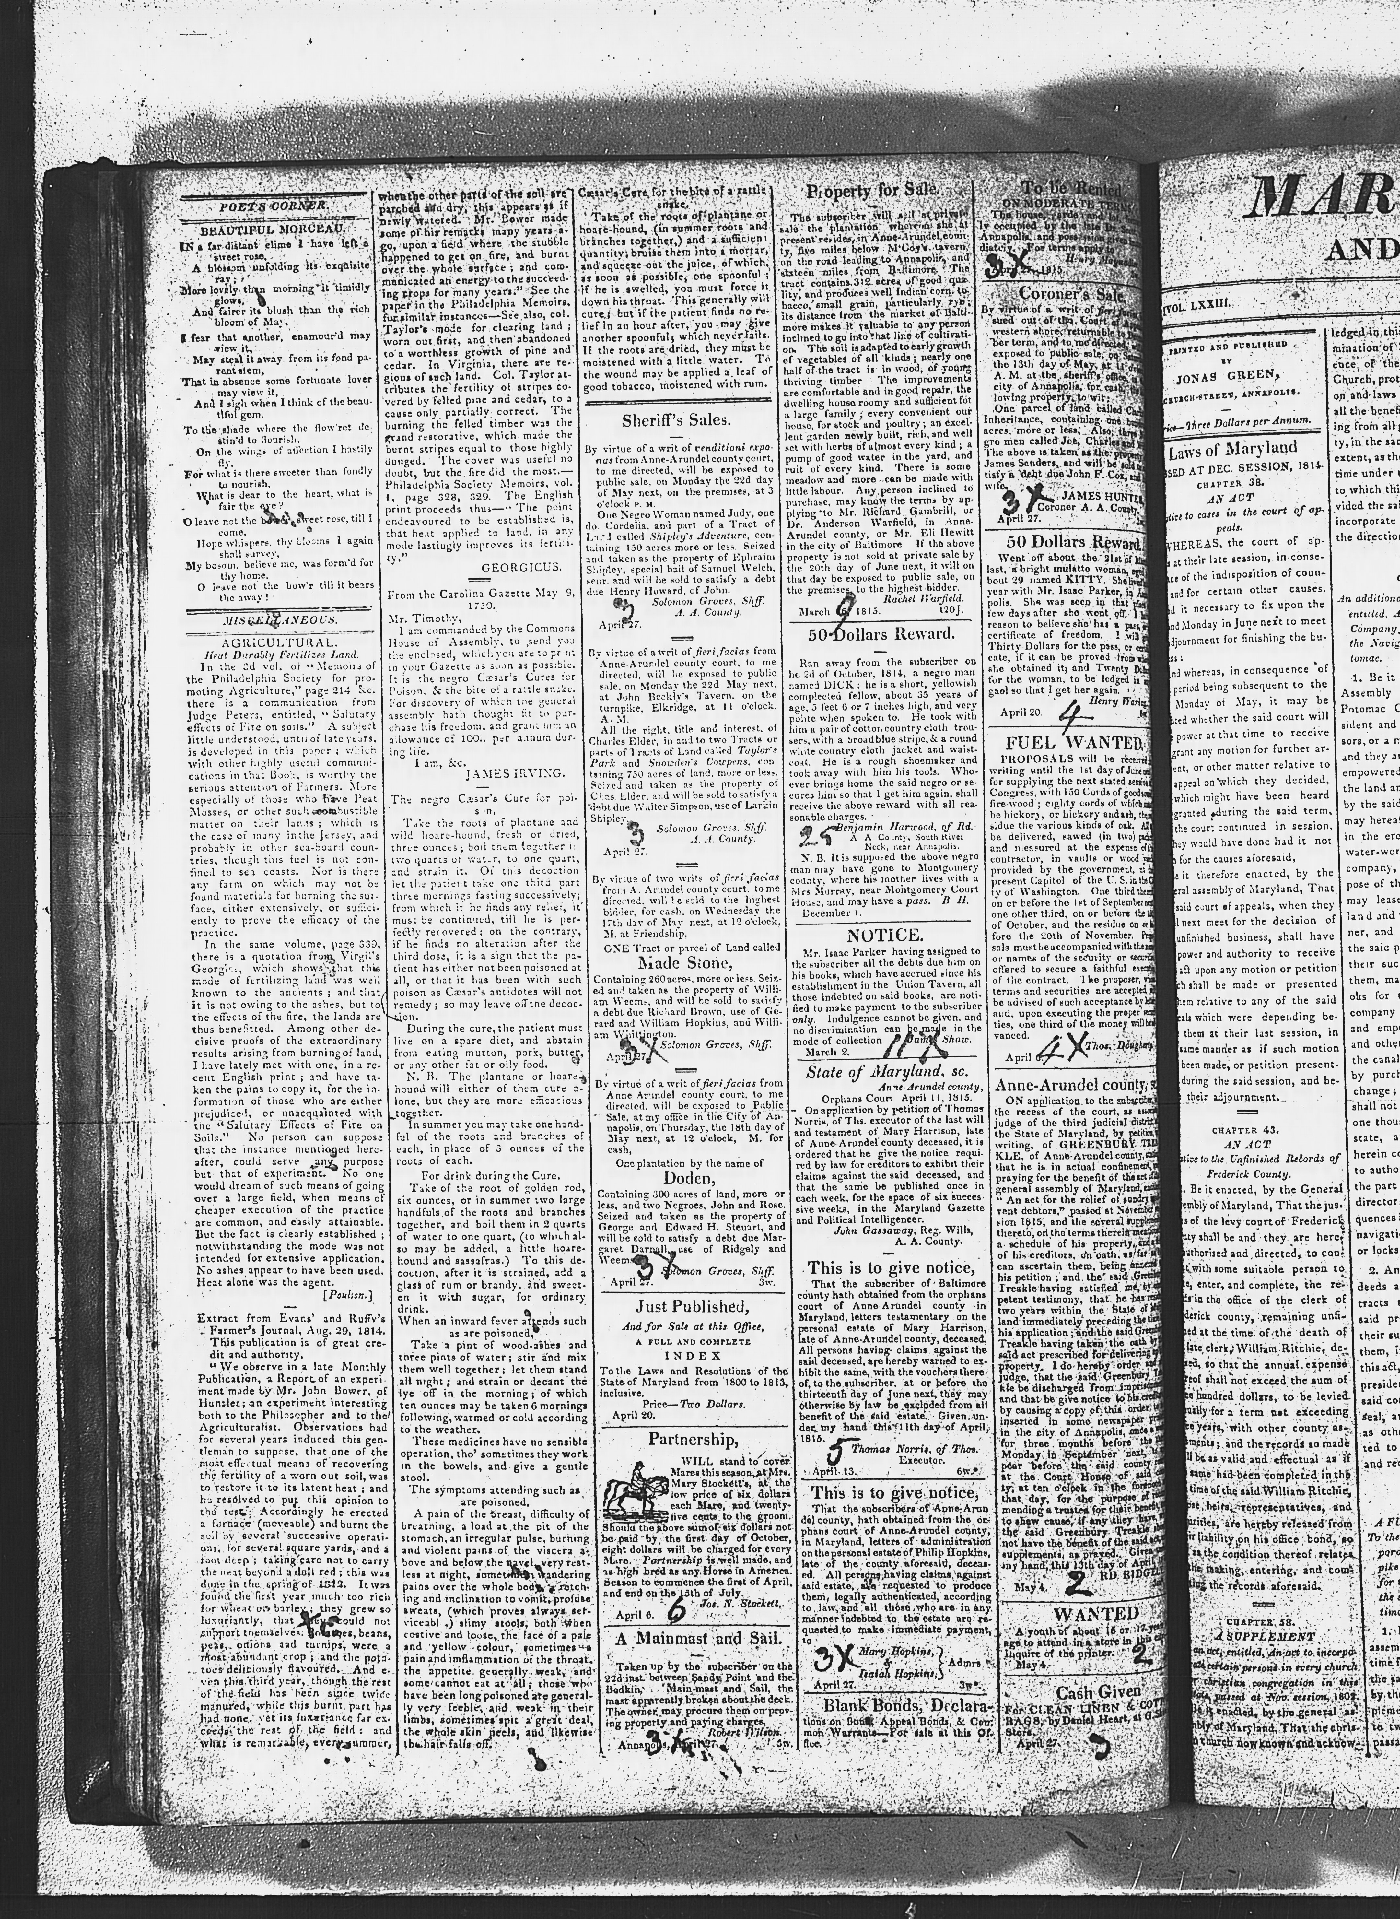 POET'S CORNER.
BEAUTIFUL MORCEAU.
IN a far distant clime I have left a
sweet rose,
A blossom unfolding its exquisite
ray;
More lovely than morning it timidly
glows,
And fairer its blush than the rich
bloom of May.
I fear that another, enamour'd may
view it,
May steal it away from its fond pa-
rent stem,
That in absence some fortunate lover
may view it,
And I sigh when I think of the beau-
tiful gem.
To the shade where the flow'ret de
stin'd to flourish,
On the wings of affection I hastily
fly,
For what is there sweeter than fondly
to nourish,
What is dear to the heart, what is
fair the eye?
O leave not the sweet rose, till I
come,
Hope whispers, thy blooms I again
shall survey,
My bosom, believe me, was form'd for
thy home,
O leave not the bow'r till it bears
the away!
MISCELLANEOUS.
AGRICULTURAL.
Heat Durably Fertilizes Land.
In the 3d vol. of "Memoirs of
the Philadelphia Society for pro-
moting Agriculture," page 214 &c.
there is a communication from
Judge Peters, entitled, "Salutary
effects of Fire on soils." A subject
little understood, until of late years,
is developed in this paper; which
with other highly useful communi-
cations in that Book, is worthy the
serious attention of Farmers. More
especially of those who have Peat
Mosses, or other such combustible
matter on their lands; which is
the case of many in the Jersey, and
probably in other sea-board coun-
tries, though this fuel is not con-
fined to sea coasts. Nor is there
any farm on which may not be
found materials for burning the sur-
face, either extensively, or suffici-
ently to prove the efficacy of the
practice.
In the same volume, page 339,
there is a quotation from Virgil's
Georgics, which shows that this
mode of fertilizing land was well
known to the ancients; and that
it is not owing to the ashes, but to
the effects of the fire, the lands are
thus benefitted. Among other de-
cisive proofs of the extraordinary
results arising from burning of land,
I have lately met with one, in a re-
cent English print; and have ta-
ken the pains to copy it, for the in-
formation of those who are either
prejudiced, or unacquainted with
the "Salutary Effects of Fire on
Soils." No person can suppose
that the instance mentioned here-
after, could serve any purpose
but that of experiment. No one
would dream of such means of going
over a large field, when means of
cheaper execution of the practice
are common, and easily attainable.
But the fact is clearly established;
notwithstanding the mode was not
intended for extensive application.
No ashes appear to have been used.
Heat alone was the agent.
[Poulson.]
Extract from Evans' and Ruffy's
Farmer's Journal, Aug. 29, 1814.
This publication is of great cre-
dit and authority.
"We observe in a late Monthly
Publication, a Report of an experi-
ment made by Mr. John Bower, of
Hunslet; an experiment interesting
both to the Philosopher and to the
Agriculturalist. Observations had
for several years induced this gen-
tleman to suppose, that one of the
most effectual means of recovering
the fertility of a worn out soil, was
to restore it to its latent heat; and
he resolved to put this opinion to
the test. Accordingly he erected
a furnace (moveable) and burnt the
soil by several successive operati-
ons, for several square yards, and a
foot deep; taking care not to carry
the heat beyond a doll red; this was
done in the spring of 1812. It was
found the first year much too rich
for wheat or barley; they grew so
luxuriantly, that they could not
support themselves. beans,
peas, onions and turnips, were a
most abundant crop; and the pota-
toes deliciously flavoured. And e-
ven this third year, though the rest
of the field has been since twice
manured, while this burnt part has
had none, yet its luxuriance far ex-
ceeds the rest of the field: and
what is remarkable, every summer,
when the other parts of the soil are
parched and dry, this appears as if
newly watered. Mr. Bower made
some of his remarks many years a-
go, upon a field where the stubble
happened to get on fire, and burnt
over the whole surface; and com-
municated an energy to the succeed-
ing crops for many years." See the
paper in the Philadelphia Memoirs,
for similar instances—See also, col.
Taylor's mode for clearing land;
worn out first, and then abandoned
to a worthless growth of pine and
cedar. In Virginia, there are re-
gions of such land. Col. Taylor at-
tributes the fertility of stripes co-
vered by felled pine and cedar, to a
cause only partially correct. The
burning the felled timber was the
grand restorative, which made the
burnt stripes equal to those highly
dunged. The cover was useful no
doubt, but the fire did the most.—
Philadelphia Society Memoirs, vol.
1, page 328, 329. The English
print proceeds thus—"The point
endeavoured to be established is,
that heat applied to land, in any
mode lastingly improves its fertili-
ty."
GEORGICUS.
From the Carolina Gazette May 9,
1750.
Mr. Timothy,
I am commanded by the Commons
House of Assembly, to send you
the enclosed, which you are to print
in your Gazette as soon as possible.
It is the negro Cæsar's Cures for
Poison, & the bite of a rattle snake.
For discovery of which the general
assembly hath thought fit to pur-
chase his freedom, and grant him an
allowance of 100l. per annum dur-
ing life.
I am, &c.
JAMES IRVING.
The negro Cæsar's Cure for poi-
son.
Take the roots of plantane and
wild hoare-hound, fresh or dried,
three ounces; boil them together in
two quarts of water, to one quart,
and strain it. Of this decoction
let the patient take one third part
three mornings fasting successively,
from which if he finds any relief, it
must be continued, till he is per-
fectly recovered; on the contrary,
if he finds no alteration after the
third dose, it is a sign that the pa-
tient has either not been poisoned at
all, or that it has been with such
poison as Cæsar's antidotes will not
remedy; so may leave off the decoc-
tion.
During the cure, the patient must
live on a spare diet, and abstain
from eating mutton, pork, butter,
or any other fat or oily food.
N. B. The plantane or hoare-
hound will either of them cure a-
lone, but they are more efficacious
together.
In summer you may take one hand-
ful of the roots and branches of
each, in place of 3 ounces of the
roots of each.
For drink during the Cure,
Take of the root of golden rod,
six ounces, or in summer two large
handfuls of the roots and branches
together, and boil them in 2 quarts
of water to one quart, (to which al-
so may be added, a little hoare-
hound and sassafras.) To this de-
coction, after it is strained, add a
glass of rum or brandy, and sweet-
en it with sugar, for ordinary
drink.
When an inward fever attends such
as are poisoned,
Take a pint of wood-ashes and
three pints of water; stir and mix
them well together; let them stand
all night; and strain or decant the
lye off in the morning; of which
ten ounces may be taken 6 mornings
following, warmed or cold according
to the weather.
These medicines have no sensible
operation, tho' sometimes they work
in the bowels, and give a gentle
stool.
The symptoms attending such as
are poisoned.
A pain of the breast, difficulty of
breathing, a load at the pit of the
stomach, an irregular pulse, burning
and violent pains of the viscera a-
bove and below the navel, very rest-
less at night, sometimes wandering
pains over the whole body, retch-
ing and inclination to vomit, profuse
sweats, (which proves always ser-
viceable,) slimy stools, both when
costive and loose, the face of a pale
and yellow colour, sometimes a
pain and inflammation of the throat,
the appetite generally weak, and
some cannot eat at all; those who
have been long poisoned are general-
ly very feeble, and weak in their
limbs, sometimes spit a great deal,
the whole skin peels, and likewise
the hair falls off.
Cæsar's Cure for the bite of a rattle
snake.
Take of the roots of plantane or
hoare-hound, (in summer roots and
branches together,) and a sufficient
quantity; bruise them into a mortar,
and squeeze out the juice, of which,
as soon as possible, one spoonful;
if he is swelled, you must force it
down his throat. This generally will
cure; but if the patient finds no re-
lief in an hour after, you may give
another spoonful, which never fails.
If the roots are dried, they must be
moistened with a little water. To
the wound may be applied a leaf of
good tobacco, moistened with rum.
Sheriff's Sales.
By virtue of a writ of renditioni expo-
nas from Anne-Arundel county court,
to me directed, will be exposed to
public sale, on Monday the 22d day
of May next, on the premises, at 3
o'clock P. M.
One Negro Woman named Judy, one
do. Cordelia, and part of a Tract of
Land called Shipley's Adventure, con-
taining 150 acres more or less. Seized
and taken as the property of Ephraim
Shipley, special bail of Samuel Welch,
senr. and will be sold to satisfy a debt
due Henry Howard, of John.
Solomon Groves, Shff.
A. A. County.
April 27.
By virtue of a writ of fieri facias from
Anne-Arundel county court, to me
directed, will be exposed to public
sale, on Monday the 22d May next,
at John Beckly's Tavern, on the
turnpike, Elkridge, at 11 o'clock,
A. M.
All the right, title and interest, of
Charles Elder, in and to two Tracts or
parts of Tracts of Land called Taylor's
Park and Snowden's Cowpens, con
taining 750 acres of land, more or less.
Seized and taken as the property of
Chas. Elder, and will be sold to satisfy a
debt due Walter Simpson, use of Larkin
Shipley.
Solomon Groves, Shff.
A. A. County.
3
April 27.
By virtue of two writs of fieri facias
from A. Arundel county court, to me
directed, will be sold to the highest
bidder, for cash, on Wednesday the
17th day of May next, at 12 o'clock,
M. at Friendship.
ONE Tract or parcel of Land called
Made Stone,
Containing 260 acres, more or less. Seiz-
ed and taken as the property of Willi-
am Weems, and will be sold to satisfy
a debt due Richard Brown, use of Ge-
rard and William Hopkins, and Willi-
am
Solomon Groves, Shff.
3X
April 27.
By virtue of a writ of fieri facias from
Anne Arundel county court, to me
directed, will be exposed to Public
Sale, at my office in the City of An-
napolis, on Thursday, the 18th day of
May next, at 12 o'clock, M. for
cash,
One plantation by the name of
Doden,
Containing 300 acres of land, more or
less, and two Negroes, John and Rose.
Seized and taken as the property of
George and Edward H. Steuart, and
will be sold to satisfy a debt due Mar-
garet Darnall, use of Ridgely and
Weems.
3X
Solomon Groves, Shff.
April 27. 3w.
Just Published,
And for Sale at this Office,
A FULL AND COMPLETE
INDEX
To the Laws and Resolutions of the
State of Maryland from 1800 to 1813,
inclusive.
Price—Two Dollars.
April 20.
Partnership,
WILL stand to cover
Mares this season, at Mrs.
Mary Stockett's, at the
low price of six dollars
each Mare, and twenty-
five cents to the groom.
Should the above sum of six dollars not
be paid by the first day of October,
eight dollars will be charged for every
Mare. Partnership is well made, and
as high bred as any Horse in America.
Season to commence the first of April,
and end on the 15th of July.
Jos. N. Stockett.
April 6. 6
A Mainmast and Sail.
Taken up by the subscriber on the
22d inst. between Sandy Point and the
Bodkin, a Main-mast and Sail, the
mast apparently broken about the deck.
The owner may procure them on prov-
ing property and paying charges,
Robert Wilson.
Annapolis, April 27. 3w.
3X
Property for Sale.
The subscriber will sell at private
sale the plantation whereon she at
present resides, in Anne-Arundel coun-
ty, five miles below M'Coy's tavern,
on the road leading to Annapolis, and
sixteen miles from Baltimore. The
tract contains 312 acres of good qua-
lity, and produces well Indian corn, to-
bacco, small grain, particularly rye;
its distance from the market of Balti-
more makes it valuable to any person
inclined to go into that line of cultivati-
on. The soil is adapted to early growth
of vegetables of all kinds; nearly one
half of the tract is in wood, of young
thriving timber The improvements
are comfortable and in good repair, the
dwelling house roomy and sufficient for
a large family; every convenient out
house, for stock and poultry; an excel-
lent garden newly built, rich, and well
set with herbs of almost every kind; a
pump of good water in the yard, and
fruit of every kind. There is some
meadow and more can be made with
little labour. Any person inclined to
purchase, may know the terms by ap-
plying to Mr. Richard Gambrill, or
Dr. Anderson Warfield, in Anne-
Arundel county, or Mr. Eli Hewitt
in the city of Baltimore If the above
property is not sold at private sale by
the 20th day of June next, it will on
that day be exposed to public sale, on
the premises, to the highest bidder.
Rachel Warfield.
March 16, 1815. 120J.
9
50 Dollars Reward.
Ran away from the subscriber on
the 2d of October, 1814, a negro man
named DICK; he is a short, yellowish
complected fellow, about 35 years of
age, 5 feet 6 or 7 inches high, and very
polite when spoken to. He took with
him a pair of cotton country cloth trou-
sers, with a broad blue stripe, & a round
white country cloth jacket and waist-
coat. He is a rough shoemaker and
took away with him his tools. Who-
ever brings home the said negro or se-
cures him so that I get him again, shall
receive the above reward with all rea-
sonable charges.
25
Benjamin Harwood, of Rd.
A A County, South River
Neck, near Annapolis.
N. B. It is supposed the above negro
man may have gone to Montgomery
county, where his mother lives with a
Mrs Murray, near Montgomery Court
House, and may have a pass. B H.
December 1.
NOTICE.
Mr. Isaac Parker having assigned to
the subscriber all the debts due him on
his books, which have accrued since his
establishment in the Union Tavern, all
those indebted on said books, are noti-
fied to make payment to the subscriber
only. Indulgence cannot be given, and
no discrimination can be made in the
mode of collection.
Shaw.
March 2. 11 X
State of Maryland, sc.
Anne Arundel county,
Orphans Court April 11, 1815.
On application by petition of Thomas
Norris, of Ths. executor of the last will
and testament of Mary Harrison, late
of Anne-Arundel county deceased, it is
ordered that he give the notice requi-
red by law for creditors to exhibit their
claims against the said deceased, and
that the same be published once in
each week, for the space of six succes-
sive weeks, in the Maryland Gazette
and Political Intelligencer.
John Gassaway, Reg. Wills,
A. A. County.
This is to give notice,
That the subscriber of Baltimore
county hath obtained from the orphans
court of Anne Arundel county in
Maryland, letters testamentary on the
personal estate of Mary Harrison,
late of Anne-Arundel county, deceased.
All persons having claims against the
said deceased, are hereby warned to ex-
hibit the same, with the vouchers there
of, to the subscriber, at or before the
thirteenth day of June next, they may
otherwise by law be excluded from all
benefit of the said estate. Given un-
der my hand this 11th day of April,
1815.
5
Thomas Norris, of Thos.
Executor.
April 13. 6w.
This is to give notice,
That the subscribers of Anne-Arun
del county, hath obtained from the or-
phans court of Anne-Arundel county,
in Maryland, letters of administration
on the personal estate of Philip Hopkins,
late of the county aforesaid, deceas-
ed. All persons having claims, against
said estate, are requested to produce
them, legally authenticated, according
to law, and all those who are in any
manner indebted to the estate are re-
quested to make immediate payment,
to
3X
Mary Hopkins,
Isaiah Hopkins,
Admrs
April 27. 3w.
Blank Bonds, Declara-
tions on Bond, Appeal Bonds, & Com-
mon Warrants—For sale at this Of-
fice.
To be Rented
ON MODERATE
The house, garden and
ly occupied by the late Dr.
Annapolis, and possession
diately. For terms apply to
Henry
3X
April 27, 1815
Coroner's Sale
By virtue of a writ of fieri
sued out of the Court of
western shore, returnable to
ber term, and to me directed,
exposed to public sale, on
the 13th day of May, at 11
A. M. at the sheriff's office,
city of Annapolis, for cash,
lowing property, to wit:
One parcel of land called
Inheritance, containing one
acres, more or less. Also three
gro men called Joe, Charles and
The above is taken as the property
James Sanders, and will be sold
tisfy a debt due John F. Cox,
wife.
3X
JAMES HUNTER,
Coroner A. A. County.
April 27.
50 Dollars Reward.
Went off about the 21st of
last, a bright mulatto woman,
bout 29 named KITTY. She lived
year with Mr. Isaac Parker, in
polis. She was seen in that
few days after she went off. I
reason to believe she has a
certificate of freedom. I will
Thirty Dollars for the pass, or
cate, if it can be proved from
she obtained it; and Twenty
for the woman, to be lodged in
gaol so that I get her again.
Henry
April 20. 4
FUEL WANTED.
PROPOSALS will be received
writing until the 1st day of June
for supplying the next stated session
Congress, with 150 Cords of good
fire-wood; eighty cords of which
be hickory, or hickory and ash, the
sidue the various kinds of oak. All
be delivered, sawed (in two)
and measured at the expense of
contractor, in vaults or wood
provided by the government,
present Capitol of the U.S. in the
ty of Washington. One third there
on or before the 1st of September
one other third, on or before the
of October, and the residue on or
fore the 20th of November. Propo
sals must be accompanied with the
or names of the security or securities
offered to secure a faithful
of the contract. The proper
terms and securities are accepted,
be advised of such acceptance by
and, upon executing the proper
ties, one third of the money will be
vanced.
4X
Thos. Dougherty
April 6
Anne-Arundel county,
ON application to the subscriber,
the recess of the court, as
judge of the third judicial district
the State of Maryland, by petition
writing, of GREENBURY TREA-
KLE, of Anne-Arundel county,
that he is in actual confinement,
praying for the benefit of the act of
general assembly of Maryland,
"An act for the relief of sundry
vent debtors," passed at November
sion 1815, and the several supplements
thereto, on the terms therein
a schedule of his property,
of his creditors, on oath, as far
can ascertain them, being annexed
his petition; and the said Greenbury
Treakle having satisfied me, by
petent testimony, that he has
two years within the State of
land immediately preceding the
his application; and the said Greenbury
Treakle having taken the
said act prescribed for delivering
property. I do hereby order
judge, that the said Greenbury
kle be discharged from imprisonment
and that he give notice to his creditors
by causing a copy of this order to
inserted in some newspaper
in the city of Annapolis, once
for three months before the
Monday in September next,
pear before the said county
at the Court House of said
ty, at ten o'clock in the forenoon
that day, for the purpose of
mending a trustee for their benefit
to show cause, if any they have
the said Greenbury Treakle
not have the benefit of the said
supplements, as prayed. Given
my hand, this 13th day of April
RD. RIDGELY
May 4. 2
WANTED
A youth of about 16 or 17 years
age to attend in a store in this
Inquire of the printer.
May 4. 2
Cash Given
For CLEAN LINEN & COTT
RAGS, by Daniel Heart, at G. S
Store.
April 27. 3
MAR
AND
VOL. LXXIII.
PRINTED AND PUBLISHED
BY
JONAS GREEN,
CHURCH-STREET, ANNAPOLIS.
Price—Three Dollars per Annum.
Laws of Maryland
SED AT DEC. SESSION, 1814.
CHAPTER 38.
AN ACT
to cases in the court of ap-
peals.
WHEREAS, the court of ap-
at their late session, in conse-
ce of the indisposition of coun-
and for certain other causes,
it necessary to fix upon the
Monday in June next to meet
journment for finishing the bu-
And whereas, in consequence of
period being subsequent to the
Monday of May, it may be
ted whether the said court will
power at that time to receive
grant any motion for further ar-
ent, or other matter relative to
appeal on which they decided,
which might have been heard
granted during the said term,
the court continued in session,
they would have done had it not
for the causes aforesaid,
it therefore enacted, by the
eral assembly of Maryland, That
said court of appeals, when they
next meet for the decision of
unfinished business, shall have
power and authority to receive
act upon any motion or petition
ch shall be made or presented
hem relative to any of the said
als which were depending be-
them at their last session, in
same manner as if such motion
been made, or petition present-
during the said session, and be-
their adjournment.
CHAPTER 43.
AN ACT
to the Unfinished Records of
Frederick County.
Be it enacted, by the General
embly of Maryland, That the jus-
s of the levy court of Frederick
ty shall be and they are here
uthorised and directed, to con
with some suitable person to
enter, and complete, the re-
in the office of the clerk of
derick county, remaining unfi-
ed at the time of the death of
late clerk, William Ritchie, de-
ed, so that the annual expense
eof shall not exceed the sum of
hundred dollars, to be levied
ually for a term not exceeding
years, with other county as-
ments; and the records so made
be as valid and effectual as if
same had been completed in the
time of the said William Ritchie,
heirs, representatives, and
urities, are hereby released from
liability on his office bond, so
as the condition thereof relates
making, entering, and com-
g the records aforesaid.
CHAPTER 58.
A SUPPLEMENT
act, entitled, An act to incorpo-
certain persons in every church
christian congregation in this
passed at Nov. session, 1802.
it enacted, by the general as-
bly of Maryland, That the chris-
church now known and acknow-
ledged in
mination of
ence, of the
Church, pro
on and laws
all the bene
ing from all
ty, in the sa
extent, as th
time under
to which thi
vided the sa
incorporate
the direction
An additiona
entitled, A
Company,
the Navig
tomac.
1. Be it
Assembly
Potomac C
sident and
sors, or a n
and they a
empowered
the land an
by the said
may herea
in the erc
water-wor
company,
pose of th
may lease
land and
ner, and
the said p
their suc
them, ma
oks for
company
and emp
and othe
the canal
by purch
change;
shall not
one thou
state, a
herein co
to autho
the part
director
quences
navigati
or locks
2. An
deeds a
tracts
said pr
their su
them, i
this act,
preside
said co
seal, a
as othe
ted to
and re
A FU
To the
1.